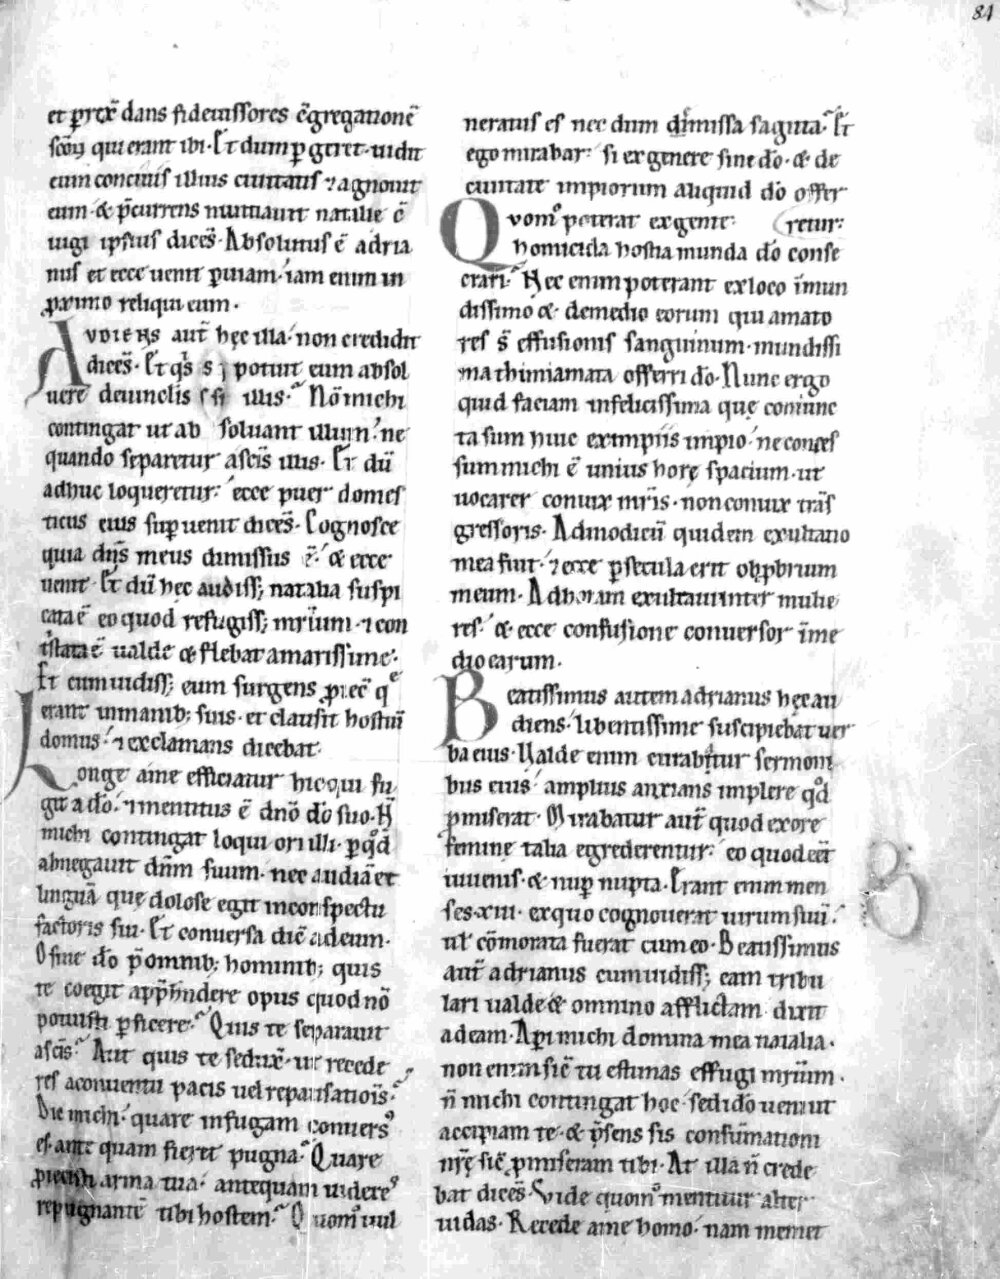 84
et p̱rexͥ dans fideiussores c̄gregationē
scōꝝ qui erant ibi. Et dum ꝑgeret. uidit
eum conciuis illius ciuitatis ⁊ agnouit
eum. & p̄currens nuntiauit natalie c̄
iugi ipsius dicēs. Absolutus ē adria
nus et ecce uenit ꝑ uiam. iam enim in
ꝓximo reliqui eum.
Avdiens aut̄ hęc illa. non credidit
dicēs. Et qͥs potuit eum absol
uere deuinclis illis. Nō michi
contingat ut ab soluant illum. ne
quando separetur a sc̄is illis. Et dū
adhuc loqueretur. ecce puer domes
ticus eius superuenit dicēs. Cognosce
quia dn̄s meus dimissus ē. & ecce
uenit. Et dū hęc audiss; natalia suspi
cata ē eo quod refugiss; mr̄ium. ⁊ con
tristata ē ualde & flebat amarissime.
Et cum uidiss; eum surgens ꝓiecͥ qͤ
erant in manib; suis. et clausit hostiū
domus. ⁊ exclamans dicebat.
Longe a me efficiatur hic qui fu
git a dō. ⁊ mentitus ē dn̄o dō suo. N̄
michi contingat loqui ori illi. ꝑ qͦd
abnegauit dn̄m suum. nec audiā et
linguā que dolose egit in conspectu
factoris sui. Et conuersa dic̄ ad eum.
O sine dō p̄ omnib; hominib; quis
te coegit app̄hendere opus quod nō
potuisti ꝑficere. Quis te separauit
a sc̄is. Aut quis te seduxͥ. ut recede
res a conuentu pacis uel repausatiōis.
Dic michi. quare in fugam conuersꝰ
es. ante quam fieret pugna. Quare
ꝓiecisti arma tua. antequam uideres
repugnantē tibi hostem. Quomͦ uul
neratus es nec dum dimissa sagitta. Et
ego mirabar. si ex genere sine dō. & de
ciuitate impiorum aliquid dō offer
retur.
Qvomͦ poterat ex gente
homicida hostia munda dō conse
crari. Nec enim poterant ex loco īmun
dissimo &. de medio eorum qui amato
res s̄ effusionis sanguinum. mundissi
ma thimiamata offerri dō. Nunc ergo
quid faciam infelicissima que coniunc
ta sum huic ex impiis impio. ne conces
sum michi ē unius horę spacium. ut
uocarer coniux mr̄is. non coniux trās
gressoris. Ad modicū quidem exultatio
mea fuit. ⁊ ecce ꝑ secula erit obꝓbrium
meum. Ad horam exultaui inter mulie
res. & ecce confusione conuersor in me
dio earum.
Beatissimus autem adrianus hęc au
diens. libentissime suscipiebat uer
ba eius. Ualde enim curabatur sermoni
bus eius amplius anxians implere qͦd
ꝓmiserat. Mirabatur aut̄ quod ex ore
feminę talia egrederentur. eo quod eēt
iuuenis. & nuꝑ nupta. Erant enim men
ses. xiii. ex quo cognouerat uirum suū.
ul̄ cōmorata fuerat cum eo. Beatissimus
aut̄ adrianus cum uidiss; eam tribu
lari ualde & omnino afflictam dixit
ad eam. Aperi michi domina mea natalia.
non enim sic̄ tu estimas effugi mr̄ium.
n̄ michi contingat hoc. sed ideo ueni ut
accipiam te. & p̄sens sis consūmationi
nr̄ę sic̄ ꝓmiseram tibi. At illa n̄ crede
bat dicēs. Uide quomͦ mentitur alter
iudas. Recede a me homo. nam memet
B